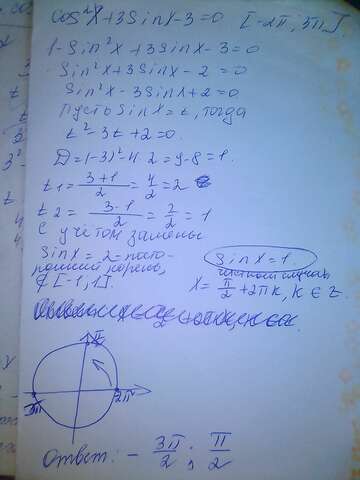 cos²x+3sinx-3=0 [-2π, 3π].
1-sin²x+3sinx-3=0
-sin²x+3sinx-2=0
sin²x-3sinx+2=0
Пусть sinx=t, тогда
t²-3t+2=0.
D=(-3)²-4·2=9-8=1.
t1=3+1/2=4/2=2
t2=3-1/2=2/2=1
С учётом замены
sinx=2-посто-
ронний корень,
∉[-1,1].
sinx=1.
частный случай,
x=π/2+2πk, k∈Z.
π/2
3π
2π
Ответ: -3π/2; π/2